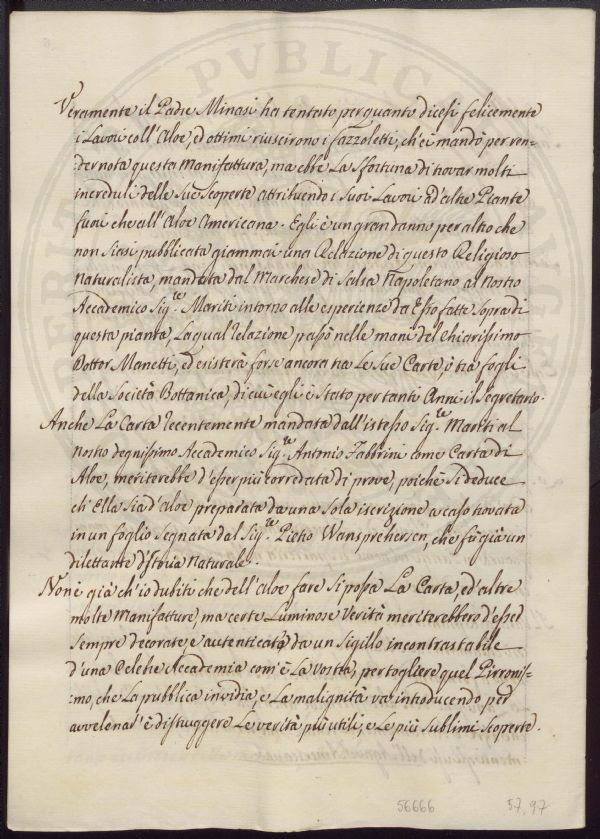 Veramente il Padre Minasi ha tentato per quanto dicesi felicemente
i Lavori coll'Aloe, ed ottimi riuscirono i fazzoletti, ch'ei mandò per ren-
der nota questa Manifattura, ma ebbe La Sfortuna di trovar molti
increduli delle Sue Scoperte attribuendo i Suoi Lavori ad'altre Piante
fuori che all'Aloe Americana. Egli è un gran danno per altro che
non Siasi pubblicata giammai una Relazione di questo Religioso
Naturalista, mandata dal Marchese di Salsa Napoletano al Nostro
Accademico Sig.re Mariti intorno alle esperienze da Esso fatte Sopra di
questa pianta, La qual relazione passò nelle mani del Chiarissimo
Dottor Manetti, ed esisterà forse ancora tra Le Sue Carte, ò tra fogli
della Società Bottanica, di cui egli è Stato per tanti Anni il Segretario.
Anche La Carta recentemente mandata dall'istesso Sig.re Mariti al
nostro degnissimo Accademico Sig.re Antonio Fabbrini come Carta di
Aloe, meriterebbe d'esser più corredata di prove, poichè Si deduce
ch'Ella Sia d'Aloe preparata da una Sola iscrizione a caso trovata
in un foglio Segnata dal Sig.re Pietro Wansprehersen, che fù già un
dilettante d'Istoria Naturale.
Non è già ch'io dubiti che dell'Aloe fare Si possa La Carta, ed'altre
molte Manifatture, ma certe Luminose Verità meriterebbero d'esser
Sempre decorate, e autenticate da un Sigillo incontrastabile
d'una Celebre Accademia com'è La Vostra, per togliere quel Pirronis-
mo, che La pubblica invidia, e La malignità va introducendo per
avvelenar' è distruggere Le verità più utili, e Le più Sublimi Scoperte.
56666
57.97